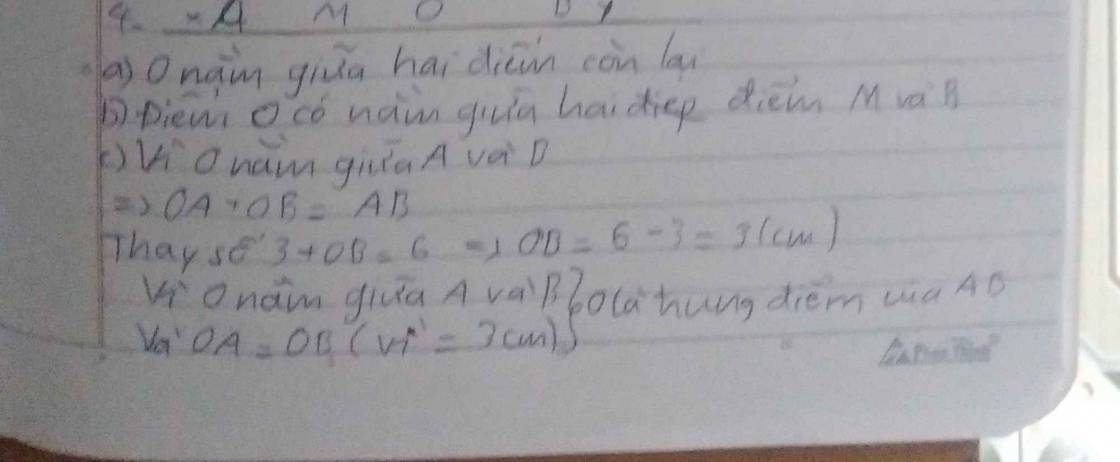 4. A M O B y
a) O nằm giữa hai điểm còn lại
b) Điểm O có nằm giữa hai điep điểm M và B
c) Vì O nằm giữa A và B
=> OA + OB = AB
Thay số 3 + OB = 6 => OB = 6 - 3 = 3 (cm)
Vì O nằm giữa A và B } O là trung điểm của AB
Và OA = OB (vì = 3cm)